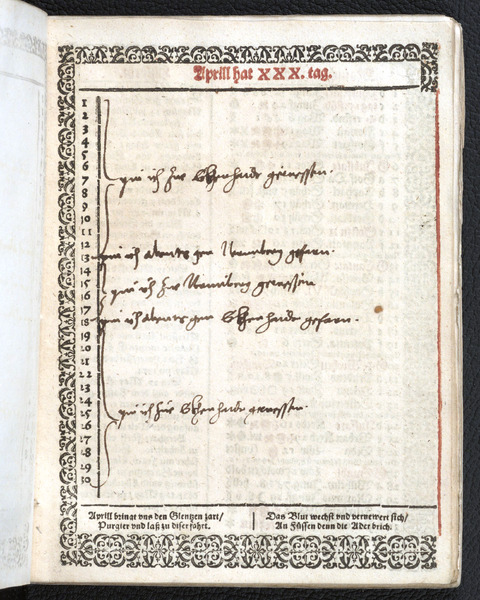 Aprill hat XXX. tag.
1
2
3
4
5
6
7 ich zu gewessen.
8
9
10
11
12
13 ich abents gen Nurmberg gefarn.
14
15
16 ich zu Nurmberg gewessen
17
18 ich abents gen gefarn.
19
20
21
22
23
24
25 ich zu gewessen.
26
27
28
29
30
Aprill bringt vns den Glentzen zart/
Purgier vnd laß zu diser fahrt.
Das Blut wechst vnd vernewert sich/
An Füssen denn die Ader brich.